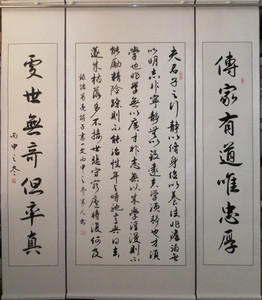 傳家有道唯忠厚
夫君子之行靜以修身儉以養德非澹泊無
以明志非寧靜無以致遠夫學須靜也才須
學也非學無以廣才非志無以成學淫慢則不
能勵精險躁則不能冶性年與時馳意與日去
遂成枯落多不接世悲守窮廬將復何及
錄諸葛亮誡子書一文丙申之冬
處世無奇但率真
丙申之冬